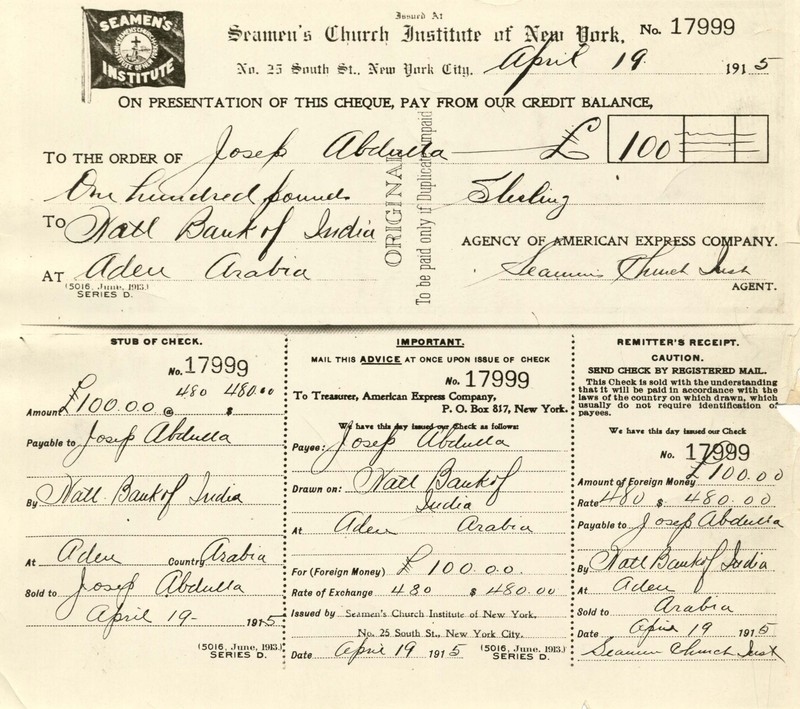 SEAMEN'S
INSTITUTE
Issued At
Seamen's Church Institute of New York.
No. 17999
No. 25 South St., New York City.
April 19 1915
ON PRESENTATION OF THIS CHEQUE, PAY FROM OUR CREDIT BALANCE,
TO THE ORDER OF Josef Abdulla £ 100
One hundred pounds Sterling
TO Natl Bank of India
AGENCY OF AMERICAN EXPRESS COMPANY.
AT Aden Arabia
Seamens Church Inst
AGENT.
(5016, June, 1913.)
SERIES D.
ORIGINAL
To be paid only if Duplicate unpaid
STUB OF CHECK.
No. 17999
480 480.00
Amount £100.0.0 @ $
Payable to Josef Abdulla
By Natl Bank of India
At Aden Country Arabia
Sold to Josef Abdulla
April 19- 1915
(5016, June, 1913.)
SERIES D.
IMPORTANT.
MAIL THIS ADVICE AT ONCE UPON ISSUE OF CHECK
No. 17999
To Treasurer, American Express Company,
P. O. Box 817, New York.
We have this day issued our Check as follows:
Payee: Josef Abdulla
Drawn on: Natl Bank of
India
At Aden Arabia
For (Foreign Money) £100.0.0.
Rate of Exchange 480 $ 480.00
Issued by Seamen's Church Institute of New York.
No. 25 South St., New York City.
Date April 19 1915
(5016, June, 1913.)
SERIES D.
REMITTER'S RECEIPT.
CAUTION.
SEND CHECK BY REGISTERED MAIL.
This Check is sold with the understanding
that it will be paid in accordance with the
laws of the country on which drawn, which
usually do not require identification of
payees.
We have this day issued our Check
No. 17999
Amount of Foreign Money £100.0 0
Rate 480 $ 480.00
Payable to Josef Abdulla
By Natl Bank of India
At Aden
Sold to Arabia
Date April 19 1915
Seamen Church Inst